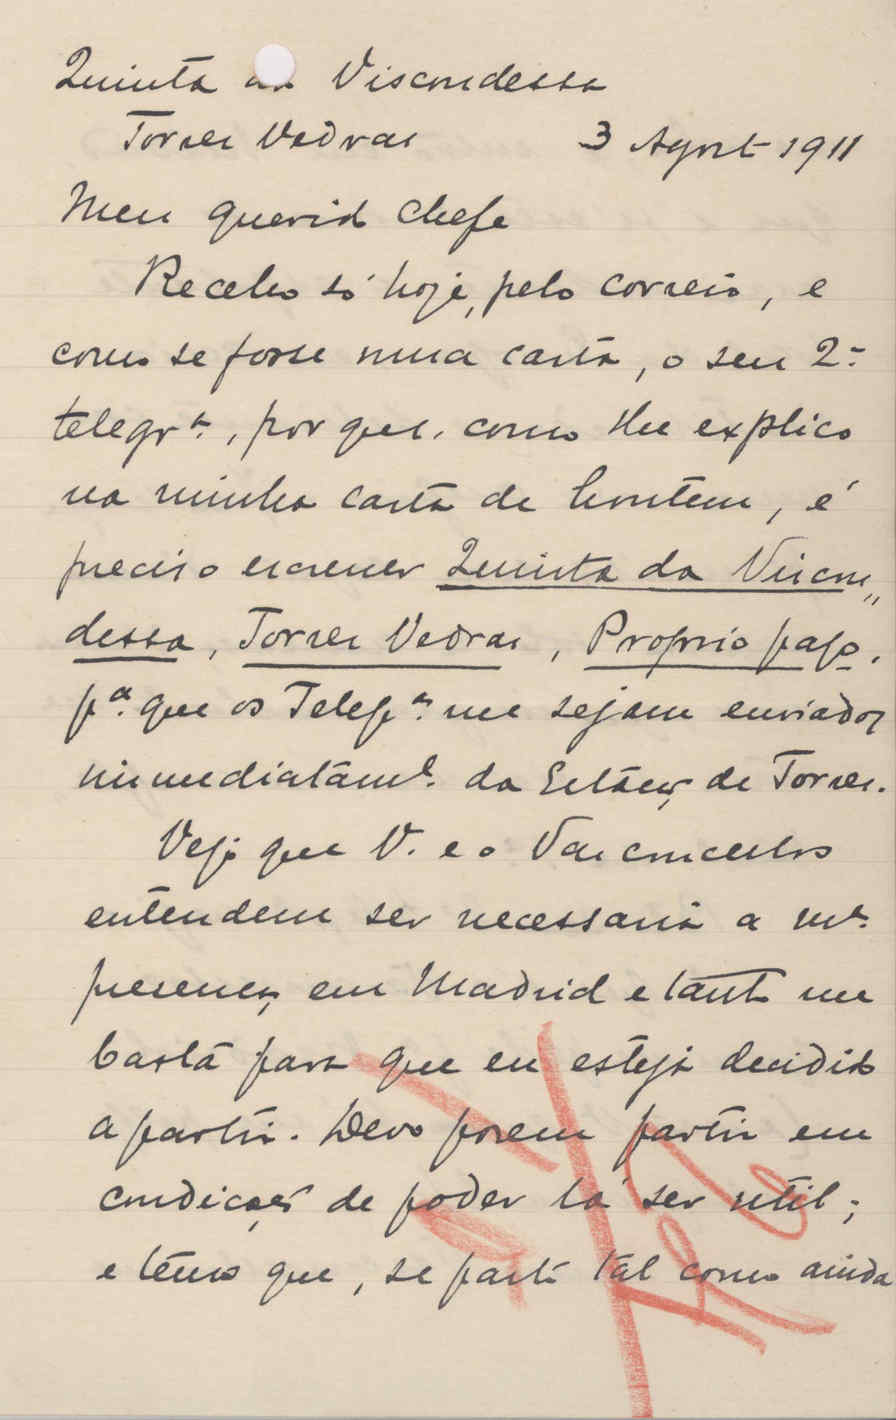 Quinta da Viscondessa
Torres Vedras 3 Agosto 1911
Meu querido Chefe
Recebo só hoje, pelo correio, e
como se fosse uma carta, o seu 2º
telegrª, por que, como lhe explico
na minha carta de hontem, é
preciso escrever Quinta da Viscon„
dessa, Torres Vedras, Proprio pago,
pª que os Telegªs me sejam enviados
immediatamte da Estação de Torres.
Vejo que V. e o Vasconcellos
entendem ser necessaria a mª
presença em Madrid e tanto me
basta para que eu esteja decidido
a partir. Devo porem partir em
condições de poder lá ser util;
e temo que, se parto tal como ainda